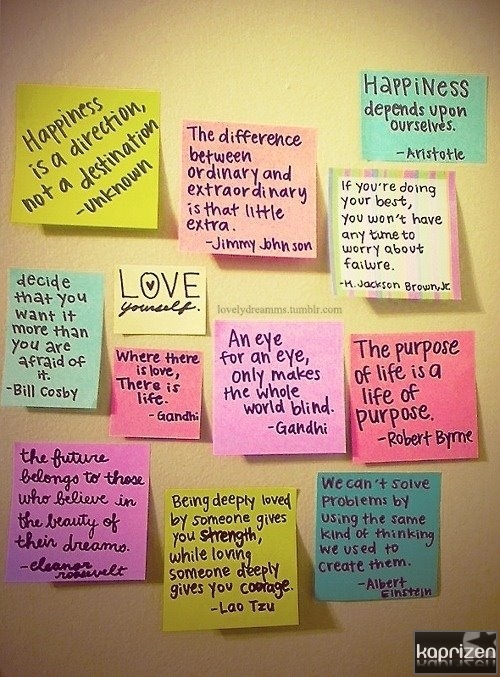 Happiness
is a direction,
not a destination
-unknown
The difference
between
ordinary and
extraordinary
is that little
extra.
-Jimmy Johnson
HAPPINESS
depends upon
ourselves.
-Aristotle
If you're doing
your best,
you won't have
any time to
worry about
failure.
-H. Jackson Brown, Jr.
decide
that you
want it
more than
you are
afraid of
it.
-Bill Cosby
LOVE
yourself.
lovelydreamms.tumblr.com
Where there
is love,
There is
life.
-Gandhi
An eye
for an eye,
only makes
the whole
world blind.
-Gandhi
The purpose
of life is a
life of
purpose.
-Robert Byrne
the future
belongs to those
who believe in
the beauty of
their dreams.
-eleanor
roosevelt
Being deeply loved
by someone gives
you strength,
while loving
someone deeply
gives you courage.
-Lao Tzu
We can't solve
problems by
using the same
kind of thinking
we used to
create them.
-Albert
Einstein
kaprizen